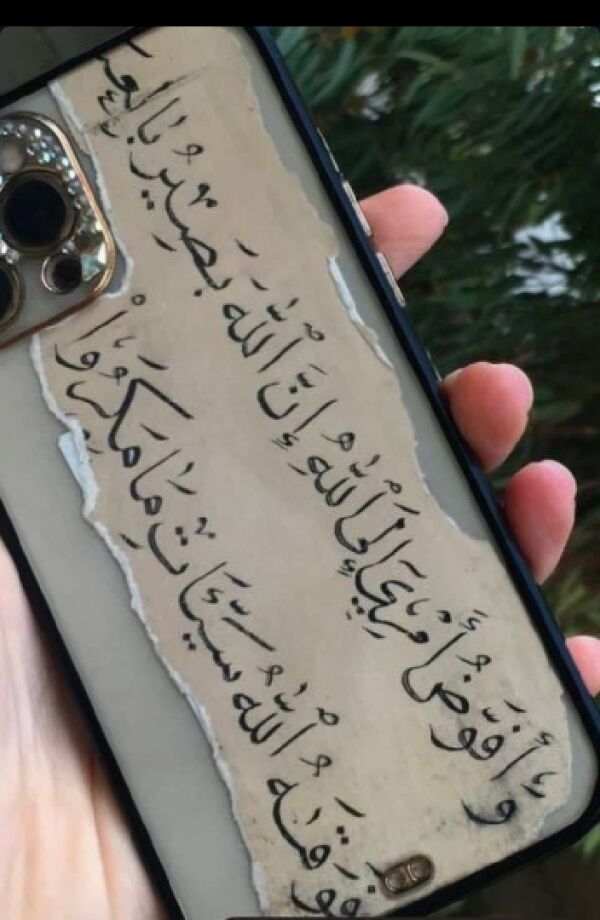 وَأُفَوِّضُ أَمْرِي إِلَى اللَّهِ إِنَّ اللَّهَ بَصِيرٌ بِالْعِبَ
فَوَقَىٰهُ اللَّهُ سَيِّـَٔاتِ مَا مَكَرُوا۟